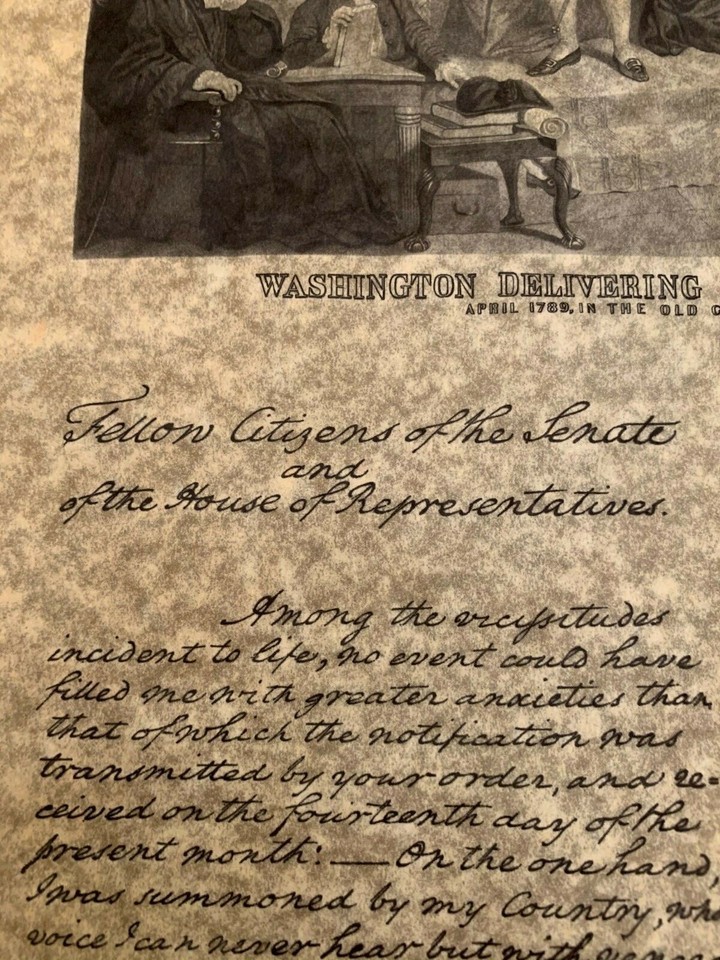 WASHINGTON DELIVERING
APRIL 1789, IN THE OLD
Fellow Citizens of the Senate
and
of the House of Representatives.
Among the vicissitudes
incident to life, no event could have
filled me with greater anxieties than
that of which the notification was
transmitted by your order, and re=
ceived on the fourteenth day of the
present month: — On the one hand,
I was summoned by my Country,
voice I can never hear but with